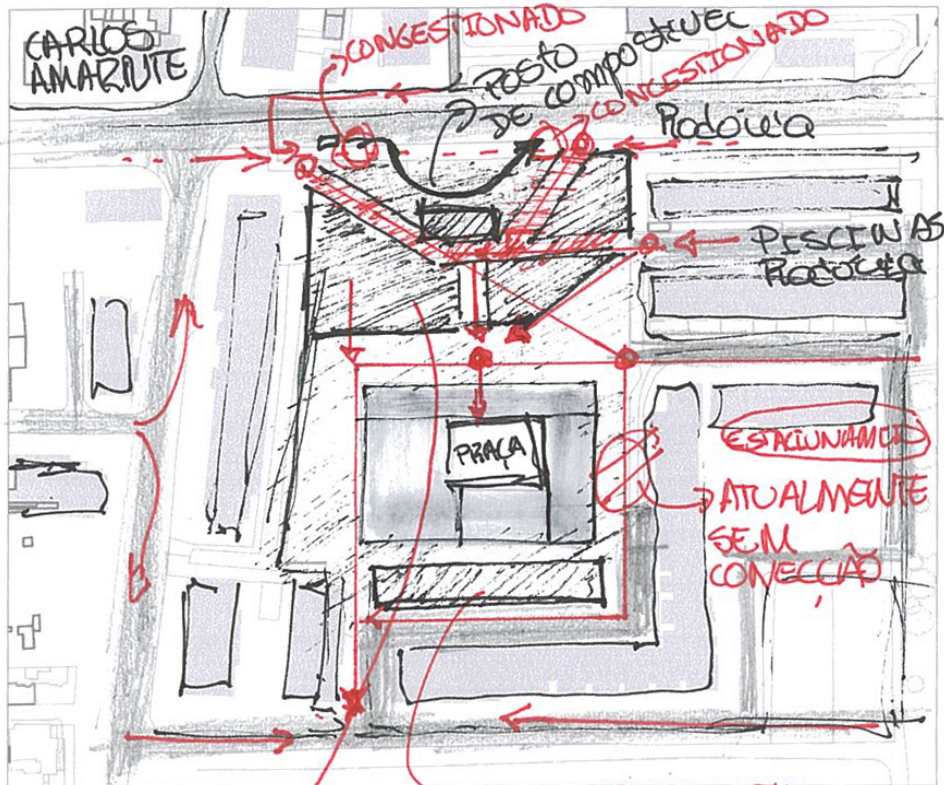 CARLOS
AMARANTE
CONGESTIONADO
POSTO
DE COMPOSTIVEL
CONGESTIONADO
Rodovia
PISCINAS
Rodovia
PRAÇA
ESTACIONAMENTO
ATUALMENTE
SEM
CONECÇÃO